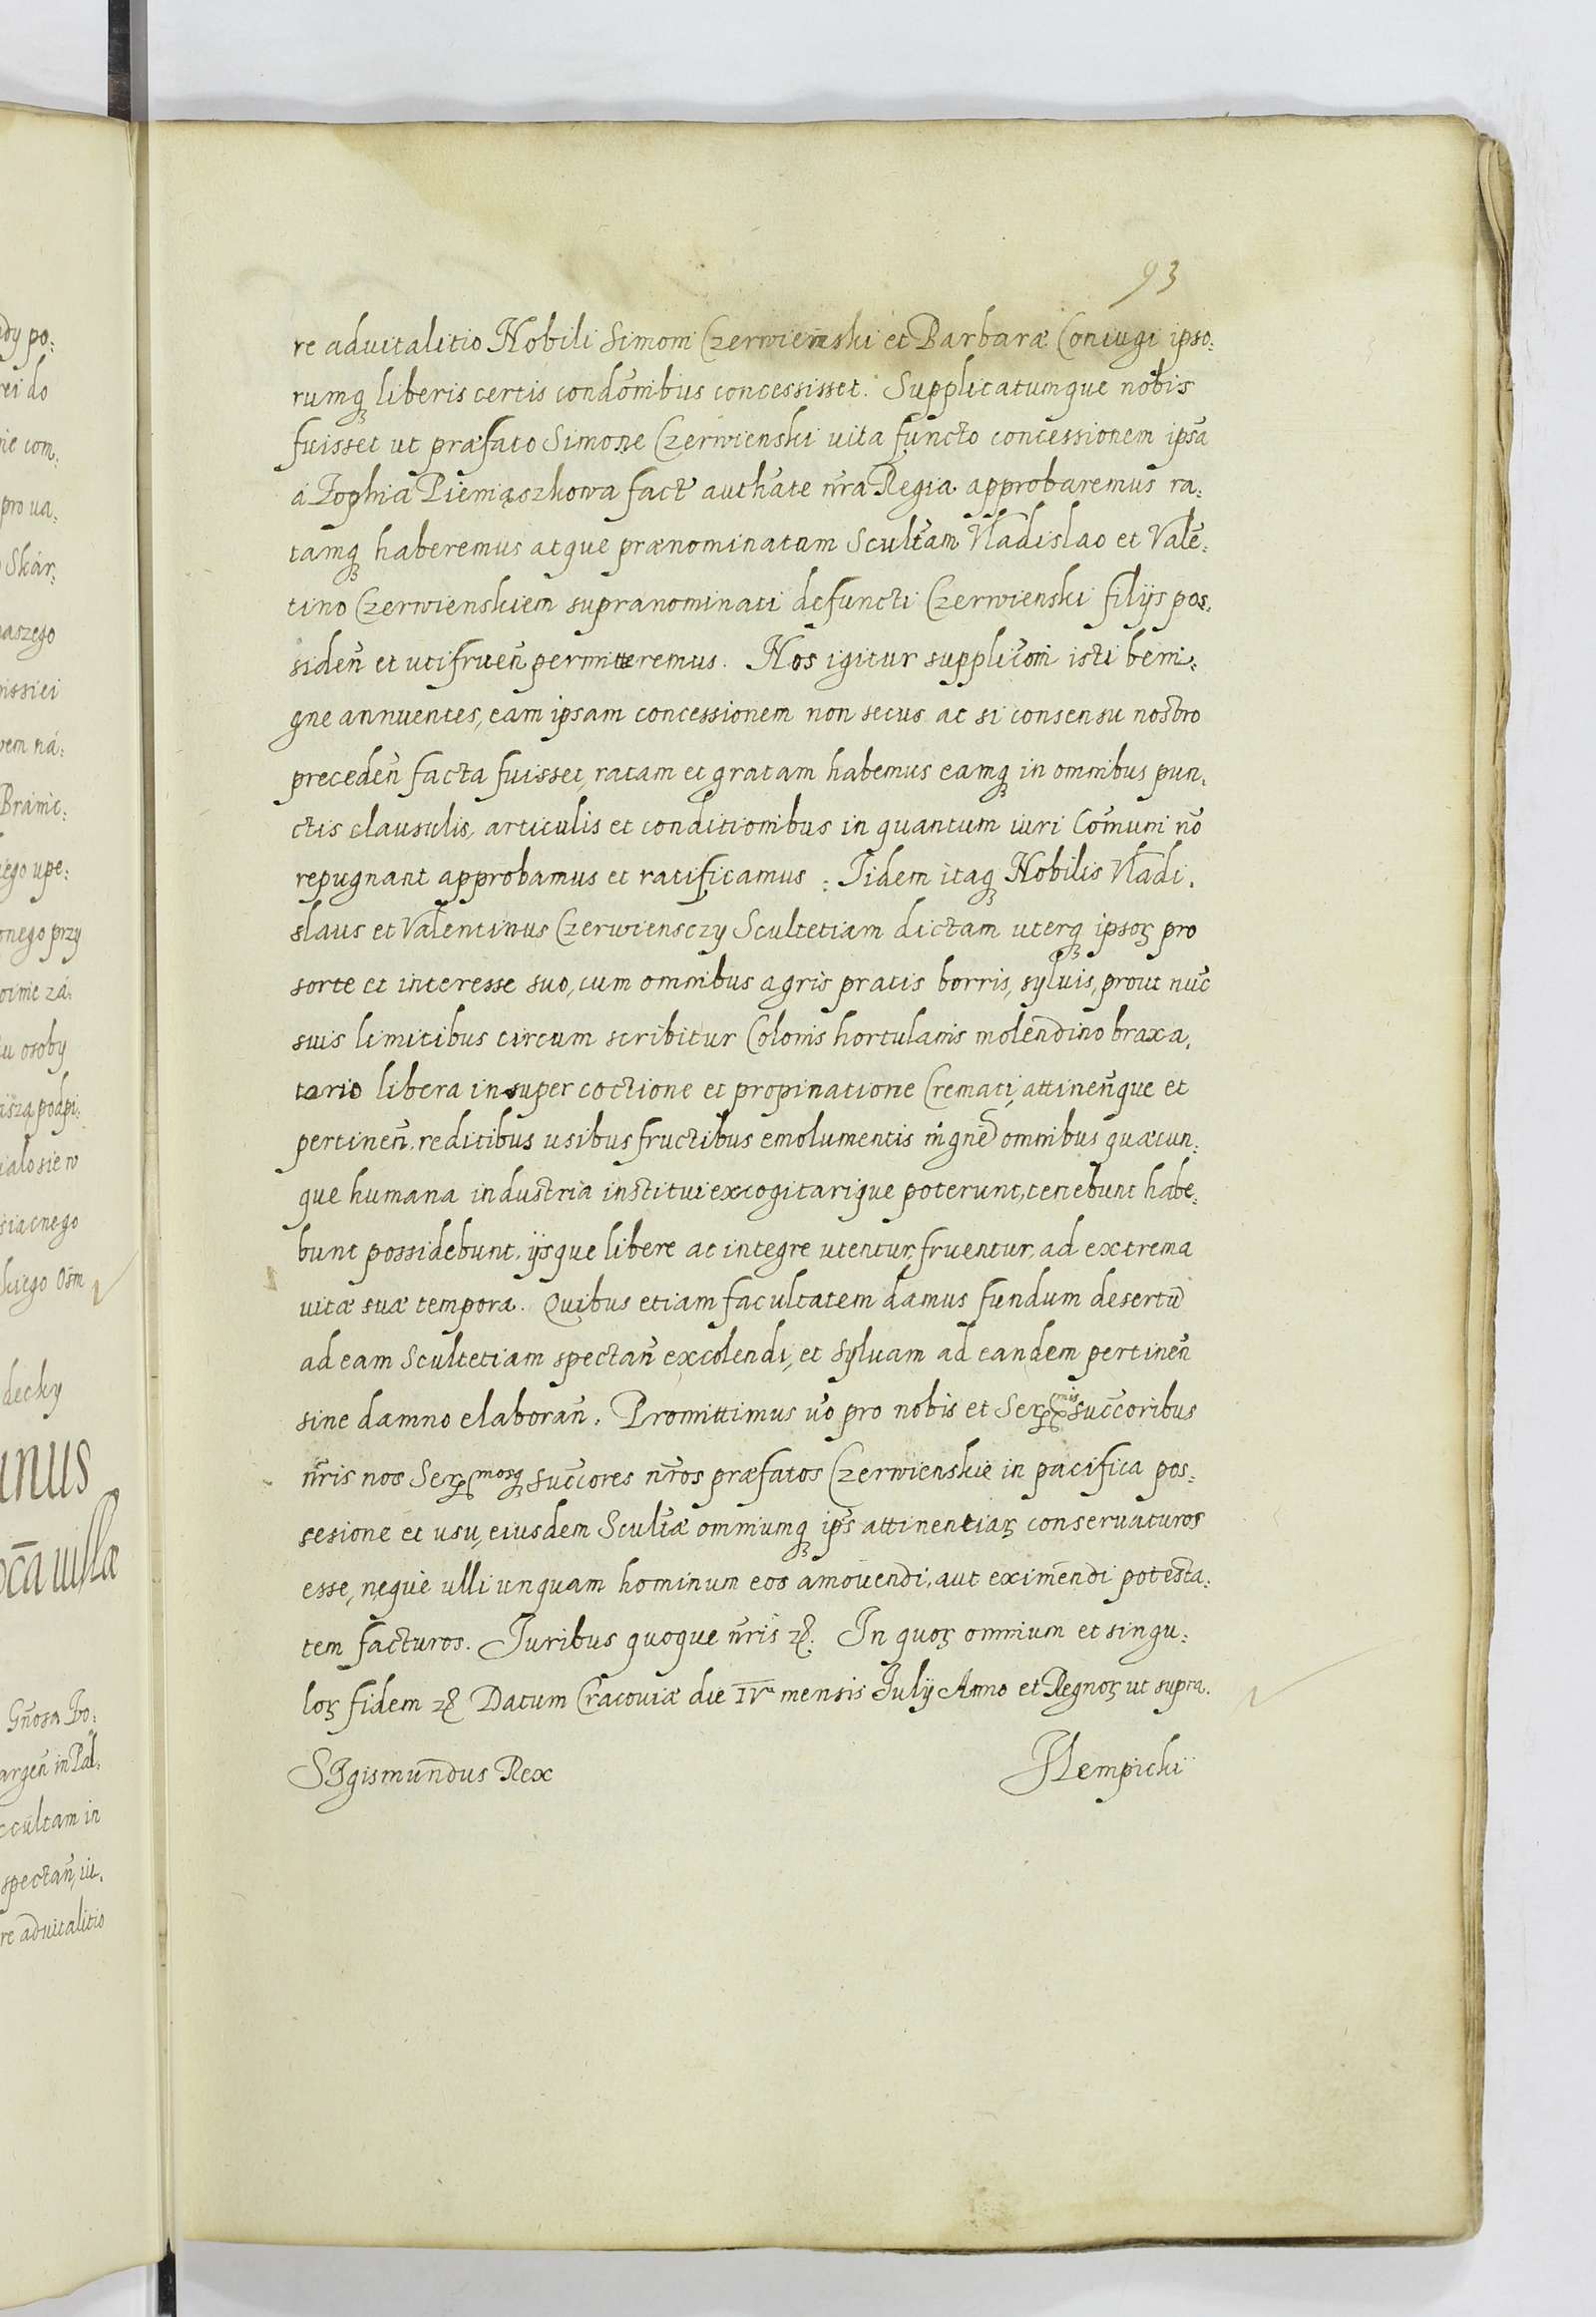 93
re aduitalitio Nobili Simoni Czerwienski et Barbaræ Coniugi ipso:
rumq liberis certis condõnibus concessisset. Supplicatumque nobis
fuisset ut præfato Simone Czerwienski uita functo concessionem ipsã
á Zophia Pieniąszkowa fact authate nr̃a Regia approbaremus ra:
tamq haberemus atque prænominatam Scultãm Vladislao et Valẽ:
tino Czerwienskiem supranominati defuncti Czerwienski filijs pos.
sideñ et utifrueñ permitteremus. Nos igitur supplicõni isti beni:
gne annuentes, eam ipsam concessionem non secus ac si consensu nostro
precedeñ facta fuisset, ratam et gratam habemus eamq in omnibus pun.
ctis clausulis, articulis et conditionibus in quantum iuri Com̃uni nõ
repugnant approbamus et ratificamus: Iidem itaq Nobilis Vladi.
slaus et Valentinus Czerwiensczy Scultetiam dictam uterq ipsoꝝ pro
sorte et interesse suo, cum omnibus agris pratis borris, syluis, prout nũc
suis limitibus circum scribitur Colonis hortulanis molendino braxa.
tario libera insuper coctione et propinatione Cremati, attineñque et
pertineñ. reditibus usibus fructibus emolumentis in gñe omnibus quæcun:
que humana industria institui excogitarique poterunt, tenebunt habe:
bunt possidebunt. ijsque libere ac integre utentur, fruentur, ad extrema
uitæ suæ tempora. Quibus etiam facultatem damus fundum desertũ
ad eam Scultetiam spectañ excolendi, et syluam ad eandem pertineñ
sine damno elaborañ. Promittimus ũo pro nobis et Ser mis succ̃oribus
nr̃is nos Ser mosq succ̃ores nr̃os præfatos Czerwienskie in pacifica pos:
sesione et usu, eiusdem Scultæ omniumq ips̃ attinentiaꝝ conseruaturos
esse, neque ulli unquam hominum eos amouendi, aut eximendi potesta:
tem facturos. Iuribus quoque nr̃is &. In quoꝝ omnium et singu:
loꝝ fidem & Datum Cracouiæ die IVᵃ mensis Iulij Anno et Regnoꝝ ut supra.
SIgismundus Rex
JLempicki